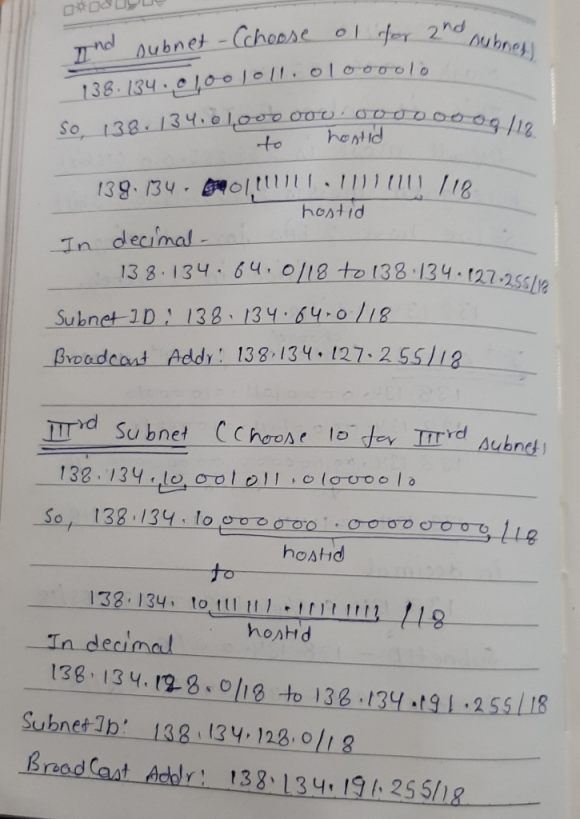 IInd subnet - (choose 01 for 2nd subnet)
138.134.01,001011.01000010
So, 138.134.01,000000.00000000/18
to hostid
138.134. 01,111111.11111111 /18
hostid
In decimal -
138.134.64.0/18 to 138.134.127.255/18
Subnet ID: 138.134.64.0/18
Broadcast Addr: 138.134.127.255/18
IIIrd Subnet (Choose 10 for IIIrd subnet)
138.134.10,001011.01000010
So, 138.134.10,000000.00000000,/18
hostid
to
138.134.10,111111.11111111 /18
hostid
In decimal
138.134.128.0/18 to 138.134.191.255/18
Subnet ID: 138.134.128.0/18
BroadCast Addr: 138.134.191.255/18